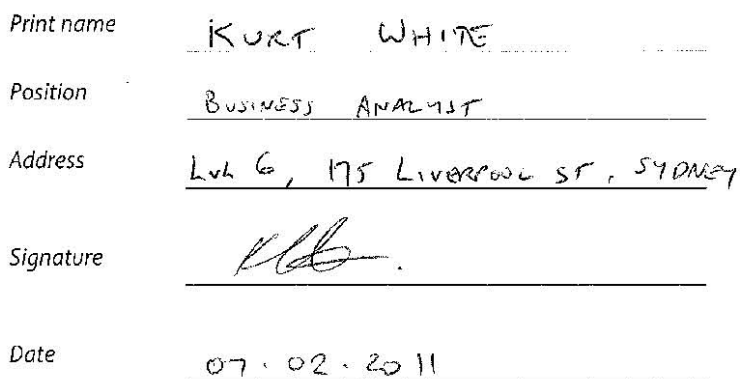 Print name KURT WHITE
Position BUSINESS ANALYST
Address LVL 6, 175 LIVERPOOL ST, SYDNEY
Signature
Date 07.02.2011